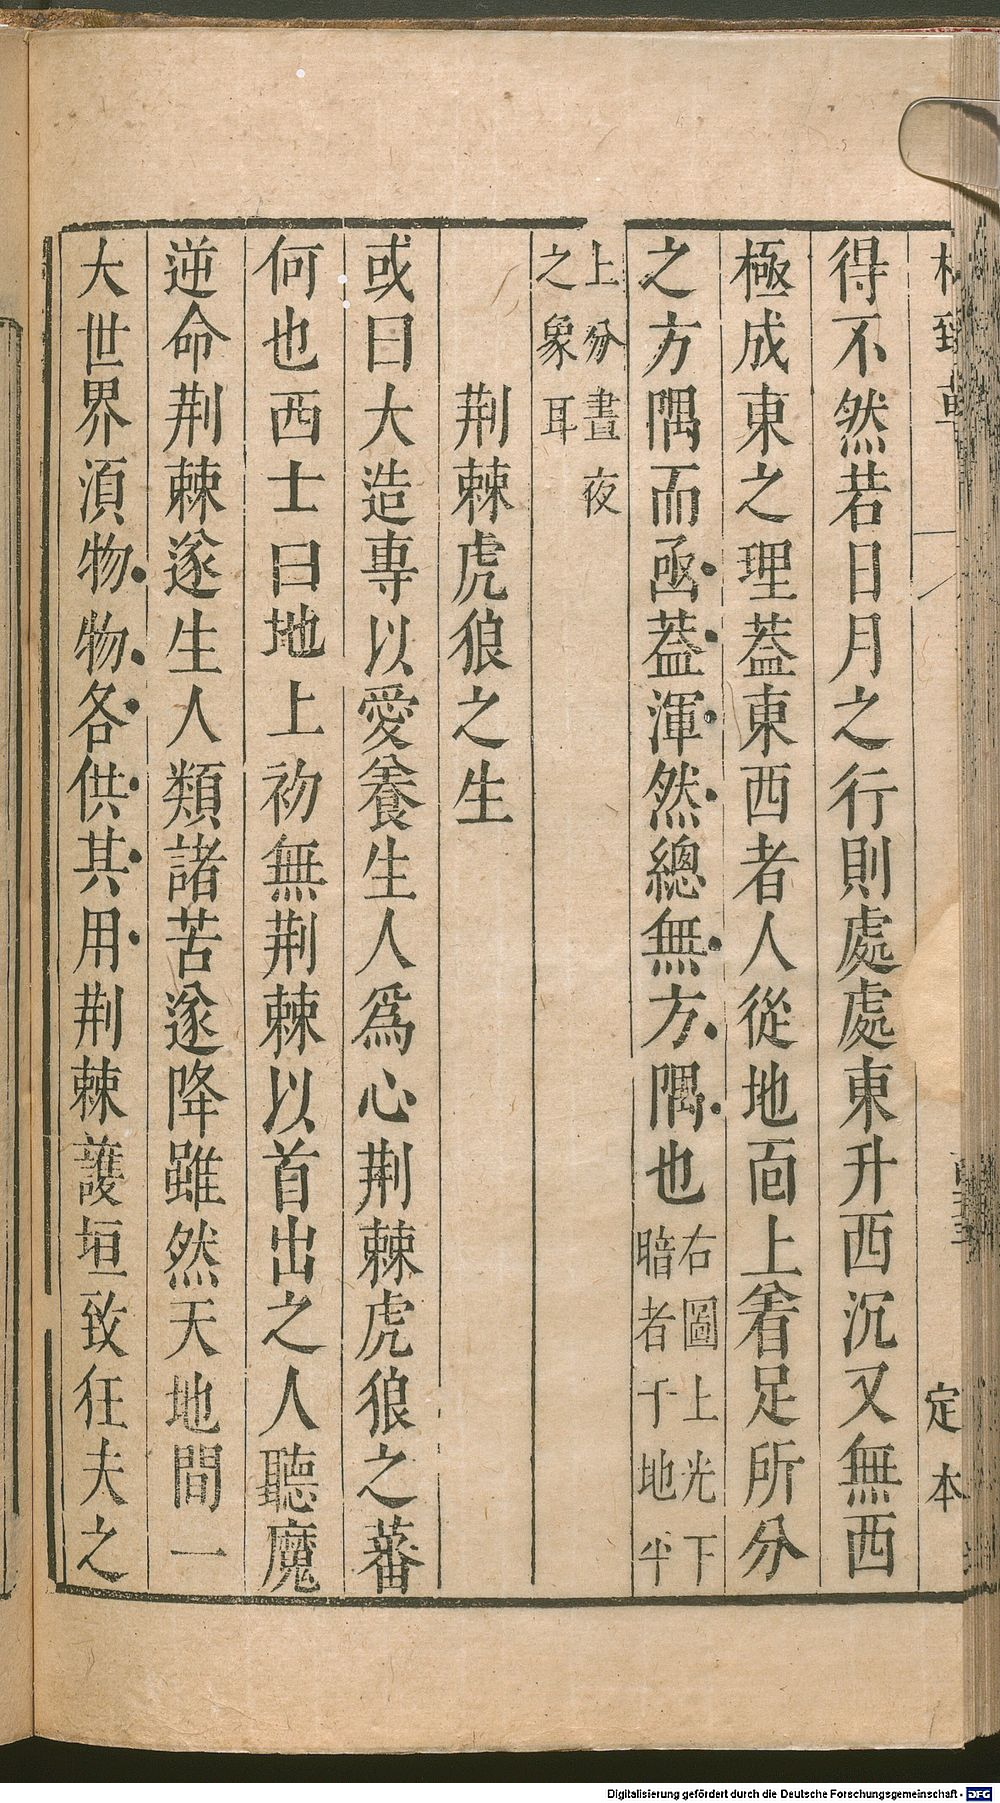 格致草
定本
得不然若日月之行則處處東升西沉又無西
極成東之理葢東西者人從地面上看足所分
之方隅而函葢渾然總無方隅也右圖上光下
暗者于地半
上分晝夜
之象耳
荆棘虎狼之生
或曰大造專以愛養生人爲心荆棘虎狼之蕃
何也西士曰地上初無荆棘以首出之人聽魔
逆命荆棘遂生人類諸苦遂降雖然天地間一
大世界湏物物各供其用荆棘護垣致狂夫之
Digitalisierung gefördert durch die Deutsche Forschungsgemeinschaft - DFG